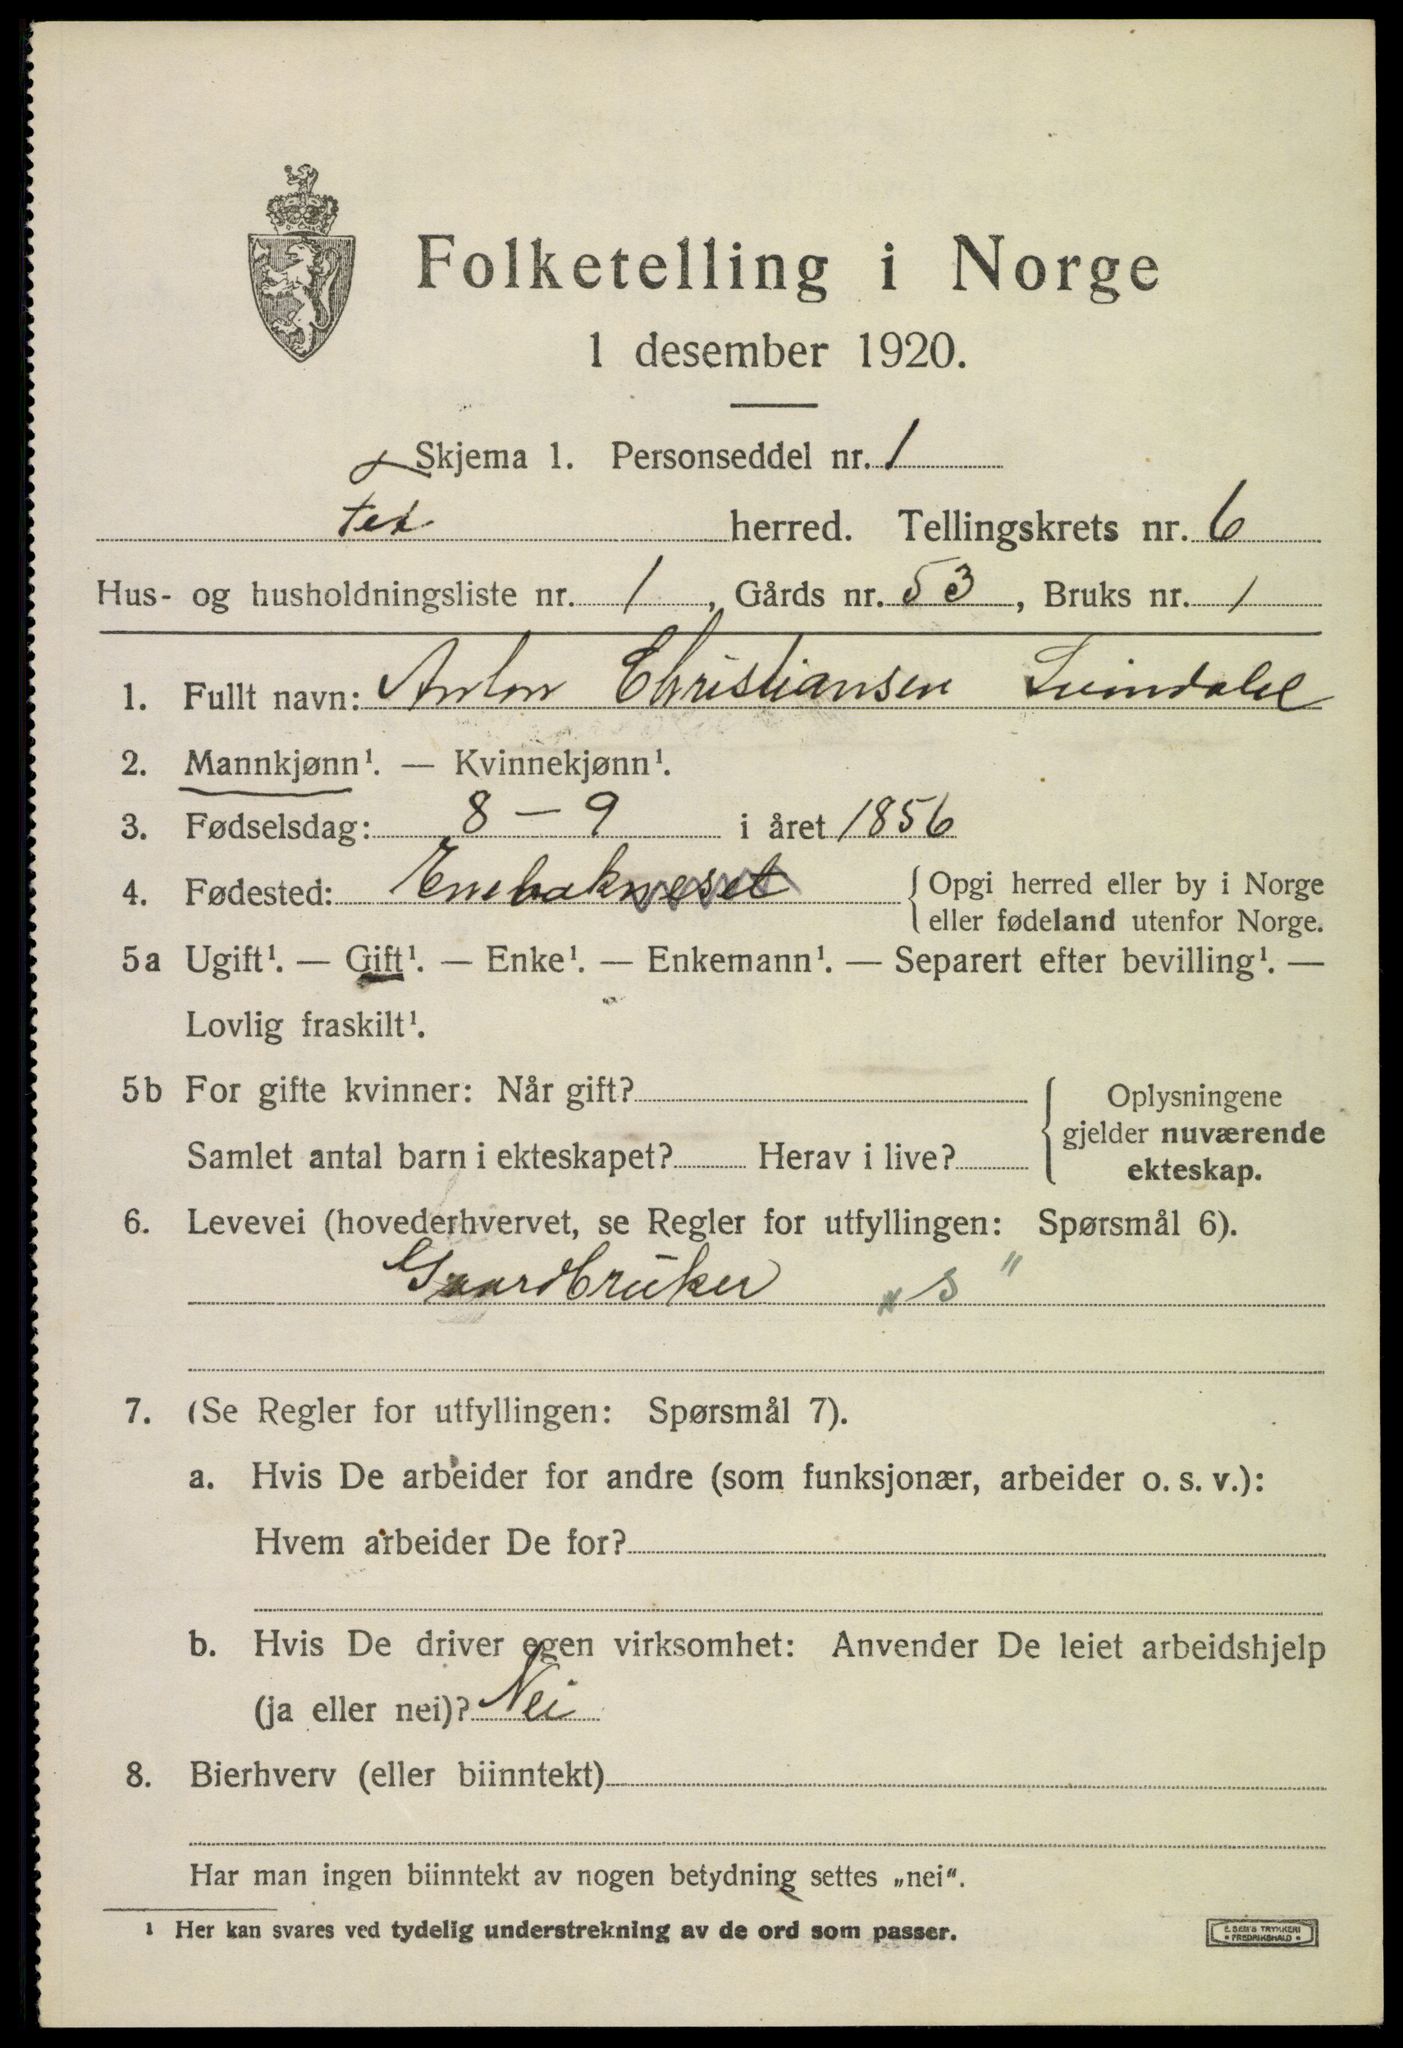 Folketelling i Norge
1 desember 1920.
Skjema 1. Personseddel nr. 1
Fet herred. Tellingskrets nr. 6
Hus- og husholdningsliste nr. 1, Gårds nr. 53, Bruks nr. 1
1. Fullt navn: Anton Christiansen
2. Mannkjønn¹. — Kvinnekjønn¹.
3. Fødselsdag: 8 – 9 i året 1856
4. Fødested: Enebakneset { Opgi herred eller by i Norge
eller fødeland utenfor Norge.
5a Ugift¹. — Gift¹. — Enke¹. — Enkemann¹. — Separert efter bevilling¹. —
Lovlig fraskilt¹.
5b For gifte kvinner: Når gift? { Oplysningene
gjelder nuværende
Samlet antal barn i ekteskapet? Herav i live?
ekteskap.
6. Levevei (hovederhvervet, se Regler for utfyllingen: Spørsmål 6).
Gaardbruker "s"
7. (Se Regler for utfyllingen: Spørsmål 7).
a. Hvis De arbeider for andre (som funksjonær, arbeider o. s. v.):
Hvem arbeider De for?
b. Hvis De driver egen virksomhet: Anvender De leiet arbeidshjelp
(ja eller nei)? Nei
8. Bierhverv (eller biinntekt)
Har man ingen biinntekt av nogen betydning settes „nei“.
¹ Her kan svares ved tydelig understrekning av de ord som passer.
E. SEM'S TRYKKERI
• FREDRIKSHALD •